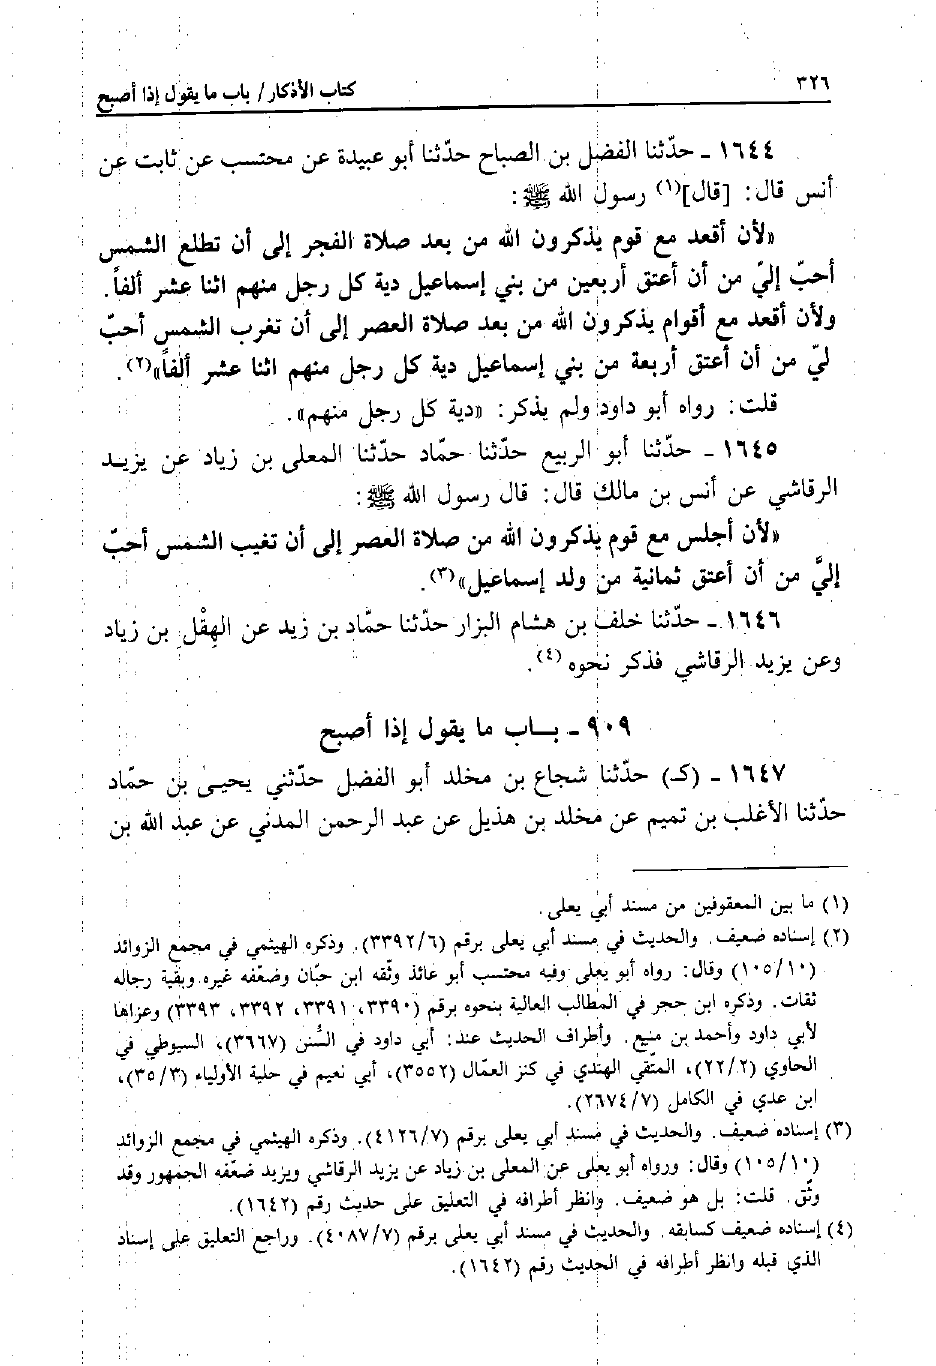 ٣٢٦
كتاب الأذكار/ باب ما يقول إذا أصبح
١٦٤٤ - حدّثنا الفضل بن الصباح حدّثنا أبو عبيدة عن محتسب عن ثابت عن
أنس قال: [قال](١) رسول الله ﷺ:
«لأن أقعد مع قوم يذكرون الله من بعد صلاة الفجر إلى أن تطلع الشمس
أحبّ إليّ من أن أعتق أربعين من بني إسماعيل دية كل رجل منهم اثنا عشر ألفاً.
ولأن أقعد مع أقوام يذكرون الله من بعد صلاة العصر إلى أن تغرب الشمس أحبّ
ليّ من أن أعتق أربعة من بني إسماعيل دية كل رجل منهم اثنا عشر ألفاً»(٢).
قلت: رواه أبو داود ولم يذكر: «دية كل رجل منهم».
١٦٤٥ - حدّثنا أبو الربيع حدّثنا حمّاد حدّثنا المعلى بن زياد عن يزيد
الرقاشي عن أنس بن مالك قال: قال رسول الله ﷺ:
«لأن أجلس مع قوم يذكرون الله من صلاة العصر إلى أن تغيب الشمس أحبّ
إليَّ من أن أعتق ثمانية من ولد إسماعيل»(٣).
١٦٤٦ - حدّثنا خلف بن هشام البزار حدّثنا حمّاد بن زيد عن الهِقْل بن زياد
وعن يزيد الرقاشي فذكر نحوه(٤).
٩٠٩ - بـاب ما يقول إذا أصبح
١٦٤٧ - (كـ) حدّثنا شجاع بن مخلد أبو الفضل حدّثني يحيى بن حمّاد
حدّثنا الأغلب بن تميم عن مخلد بن هذيل عن عبد الرحمن المدني عن عبد الله بن
(١) ما بين المعقوفين من مسند أبي يعلى.
(٢) إسناده ضعيف. والحديث في مسند أبي يعلى برقم (٣٣٩٢/٦). وذكره الهيثمي في مجمع الزوائد
(١٠٥/١٠) وقال: رواه أبو يعلى وفيه محتسب أبو عائذ وثّقه ابن حبّان وضعّفه غيره وبقية رجاله
ثقات. وذكره ابن حجر في المطالب العالية بنحوه برقم (٣٣٩٠، ٣٣٩١، ٣٣٩٢، ٣٣٩٣) وعزاها
لأبي داود وأحمد بن منيع. وأطراف الحديث عند: أبي داود في السُّنن (٣٦٦٧)، السيوطي في
الحاوي (٢٢/٢)، المتّقي الهندي في كنز العمّال (٣٥٥٢)، أبي نعيم في حلية الأولياء (٣٥/٣)،
ابن عدي في الكامل (٢٦٧٤/٧).
(٣) إسناده ضعيف. والحديث في مسند أبي يعلى برقم (٤١٢٦/٧). وذكره الهيثمي في مجمع الزوائد
(١٠٥/١٠) وقال: ورواه أبو يعلى عن المعلى بن زياد عن يزيد الرقاشي ويزيد ضعّفه الجمهور وقد
وثّق. قلت: بل هو ضعيف. وانظر أطرافه في التعليق على حديث رقم (١٦٤٢).
(٤) إسناده ضعيف كسابقه. والحديث في مسند أبي يعلى برقم (٤٠٨٧/٧). وراجع التعليق على إسناد
الذي قبله وانظر أطرافه في الحديث رقم (١٦٤٢).